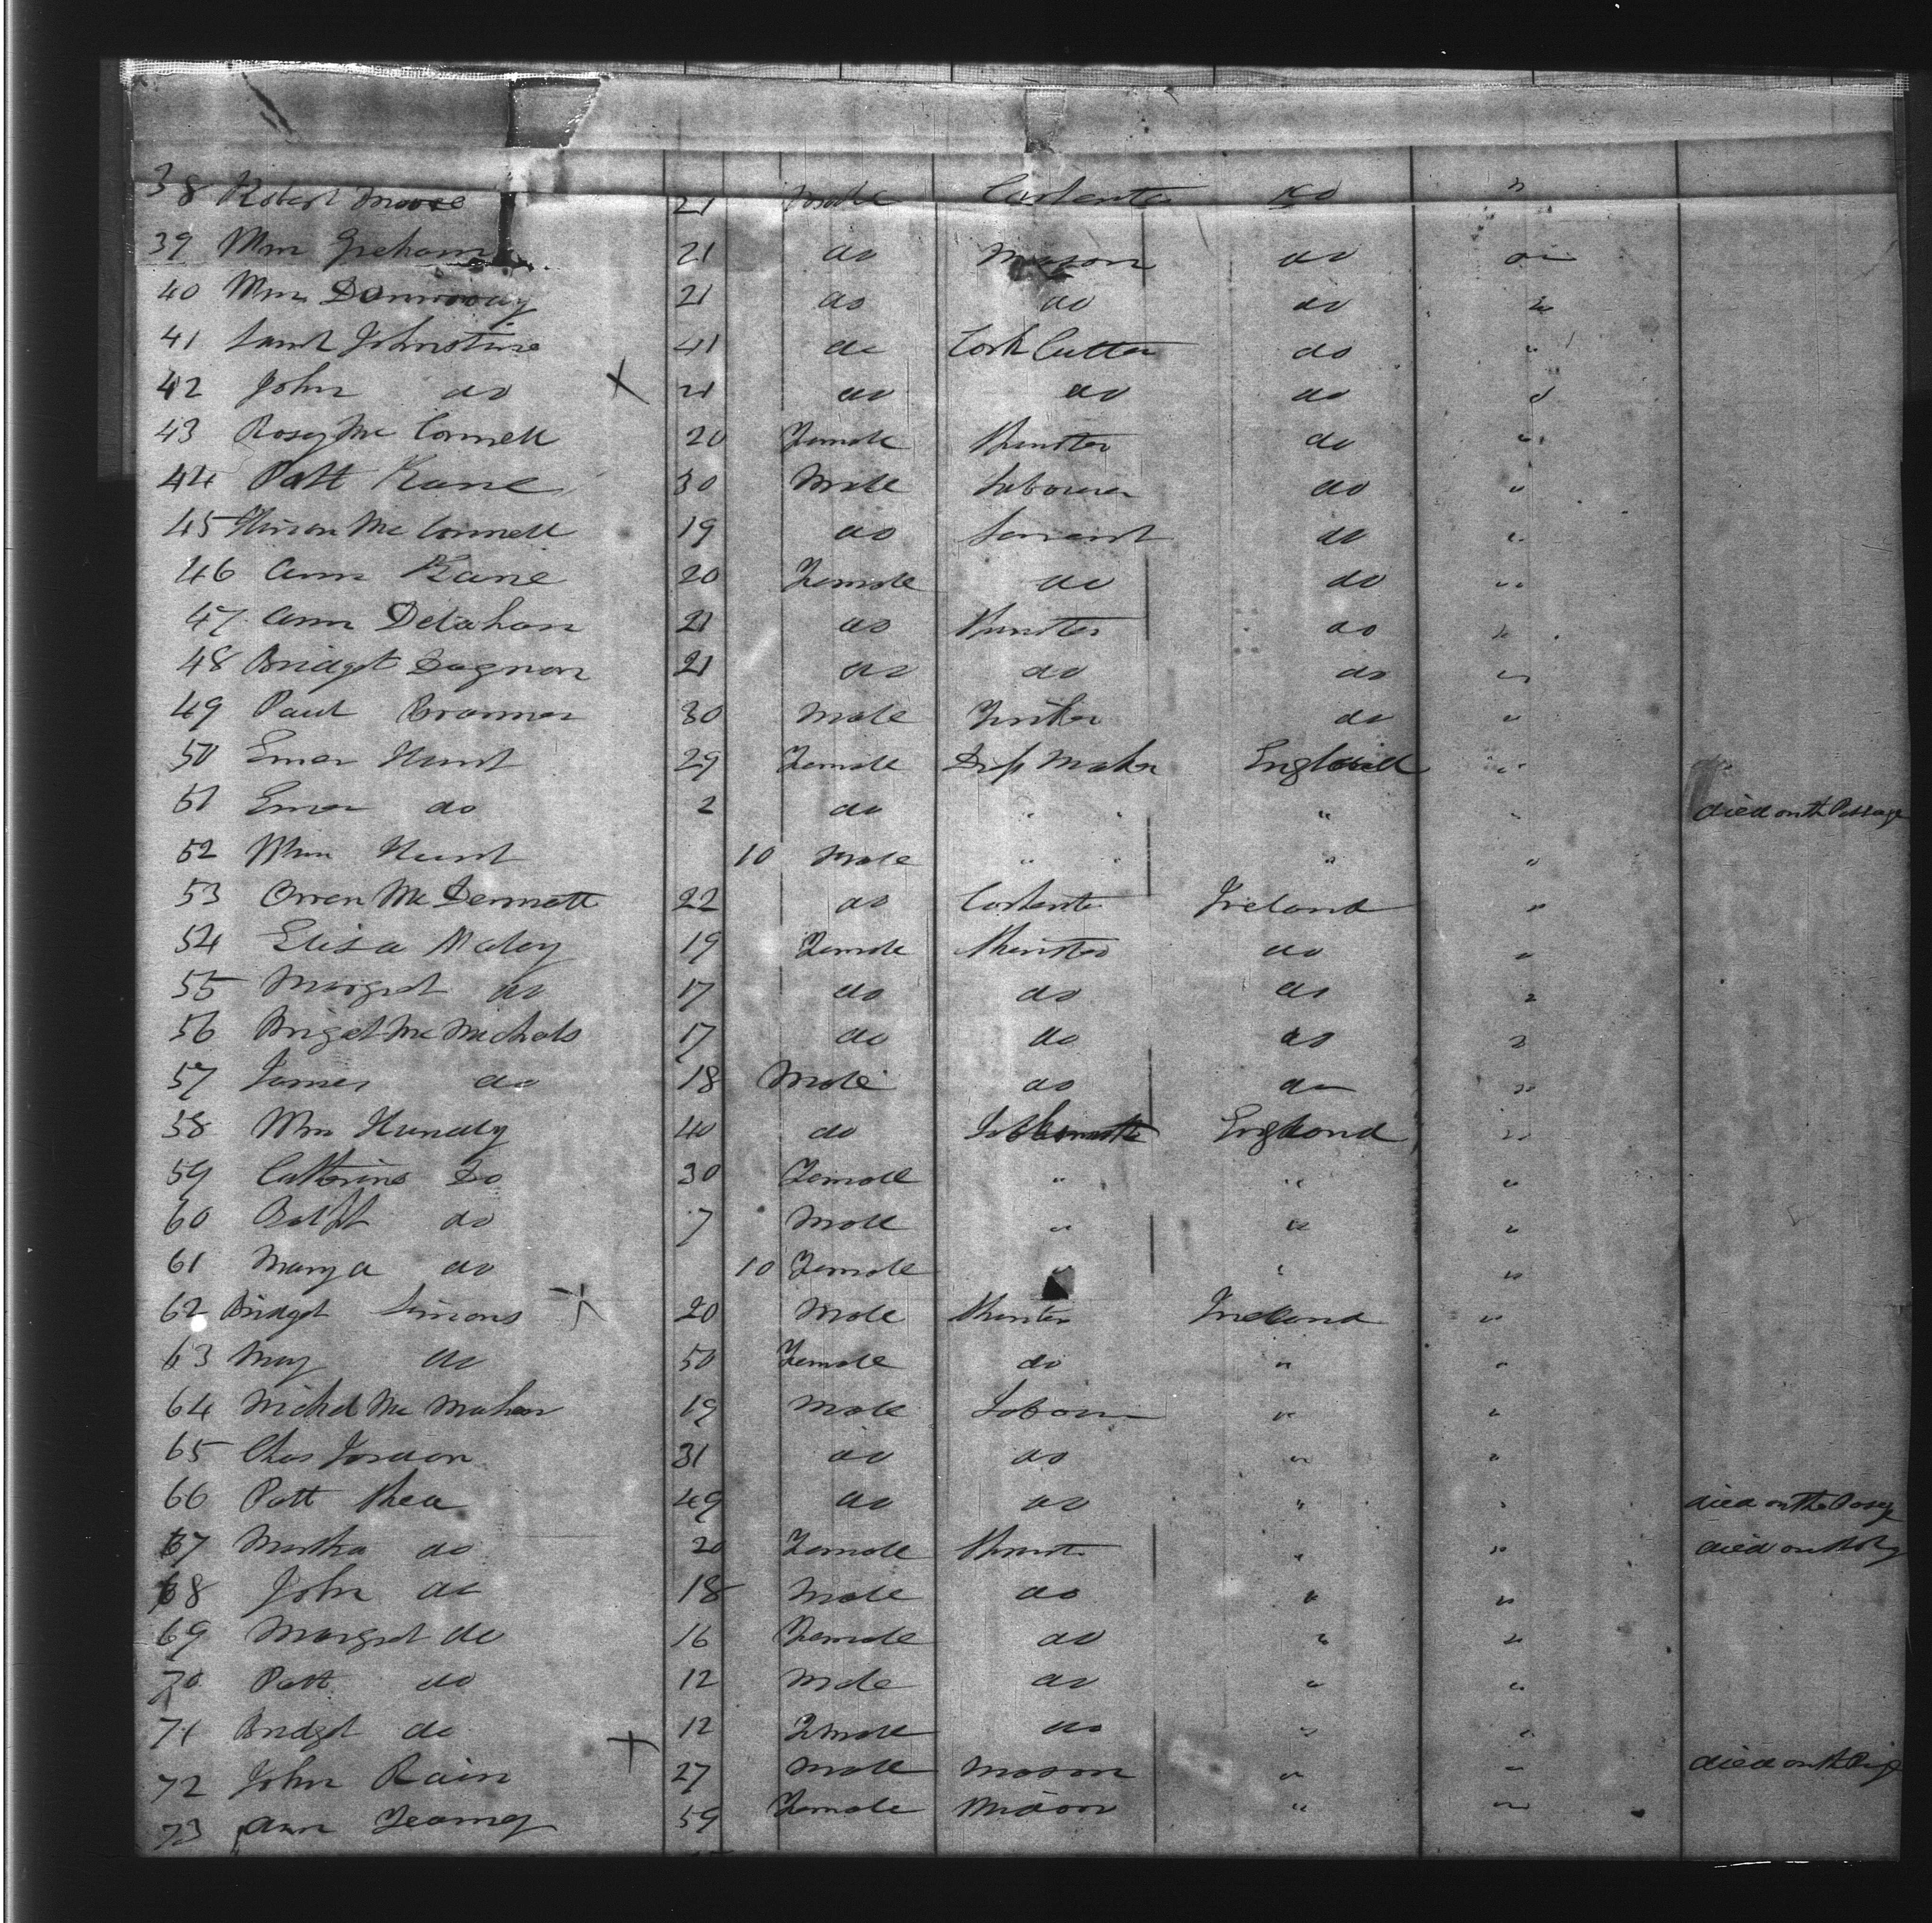 38 Robert Moore 21 Male Carpenter do "
39 Wm Greham 21 do Mason do "
40 Wm 21 do do do "
41 Saml Johnstine 41 do Cork Cutter do "
42 John do X 21 do do do "
43 Rosey Mc Connell 20 Female Spinster do "
44 Patt Kane 30 Male Labourer do "
45 Mc Connell 19 do Servant do "
46 Ann Kane 20 Female do do "
47 Ann Delahan 21 do Spinster do "
48 Bridget Dugnon 21 do do do "
49 Paul 30 Male do "
50 Emer Hunt 29 Female Drss Maker England "
51 Emer do 2 do " " " " died on th Passage
52 Wm Hunt 10 Male " " " "
53 Owen Mc Dermott 22 do Carpenter Ireland "
54 Elisa Maley 19 Female Spinster do "
55 Margret do 17 do do do "
56 Briget Mc Michols 17 do do do "
57 James do 18 Male do do "
58 Wm Hundy 40 do England "
59 Cathrine Do 30 Female " " "
60 do 7 Male " " "
61 Marya do 10 Female " " "
62 Bridget Simons X 20 Male Spinster Ireland "
63 May do 50 Female do " "
64 Michel Mc Mahon 19 Male Labour " "
65 Chas Jordon 31 do do " "
66 Patt Shea 49 do do " " died on the Passg
67 Martha do 20 Female Spinster " " died on th
68 John do 18 Male do " "
69 Margret do 16 Female do " "
70 Patt do 12 Male do " "
71 Bridget do 12 Female do " "
72 John Rain X 27 Male Mason " " died on th
73 Ann Feamey 59 Female " "